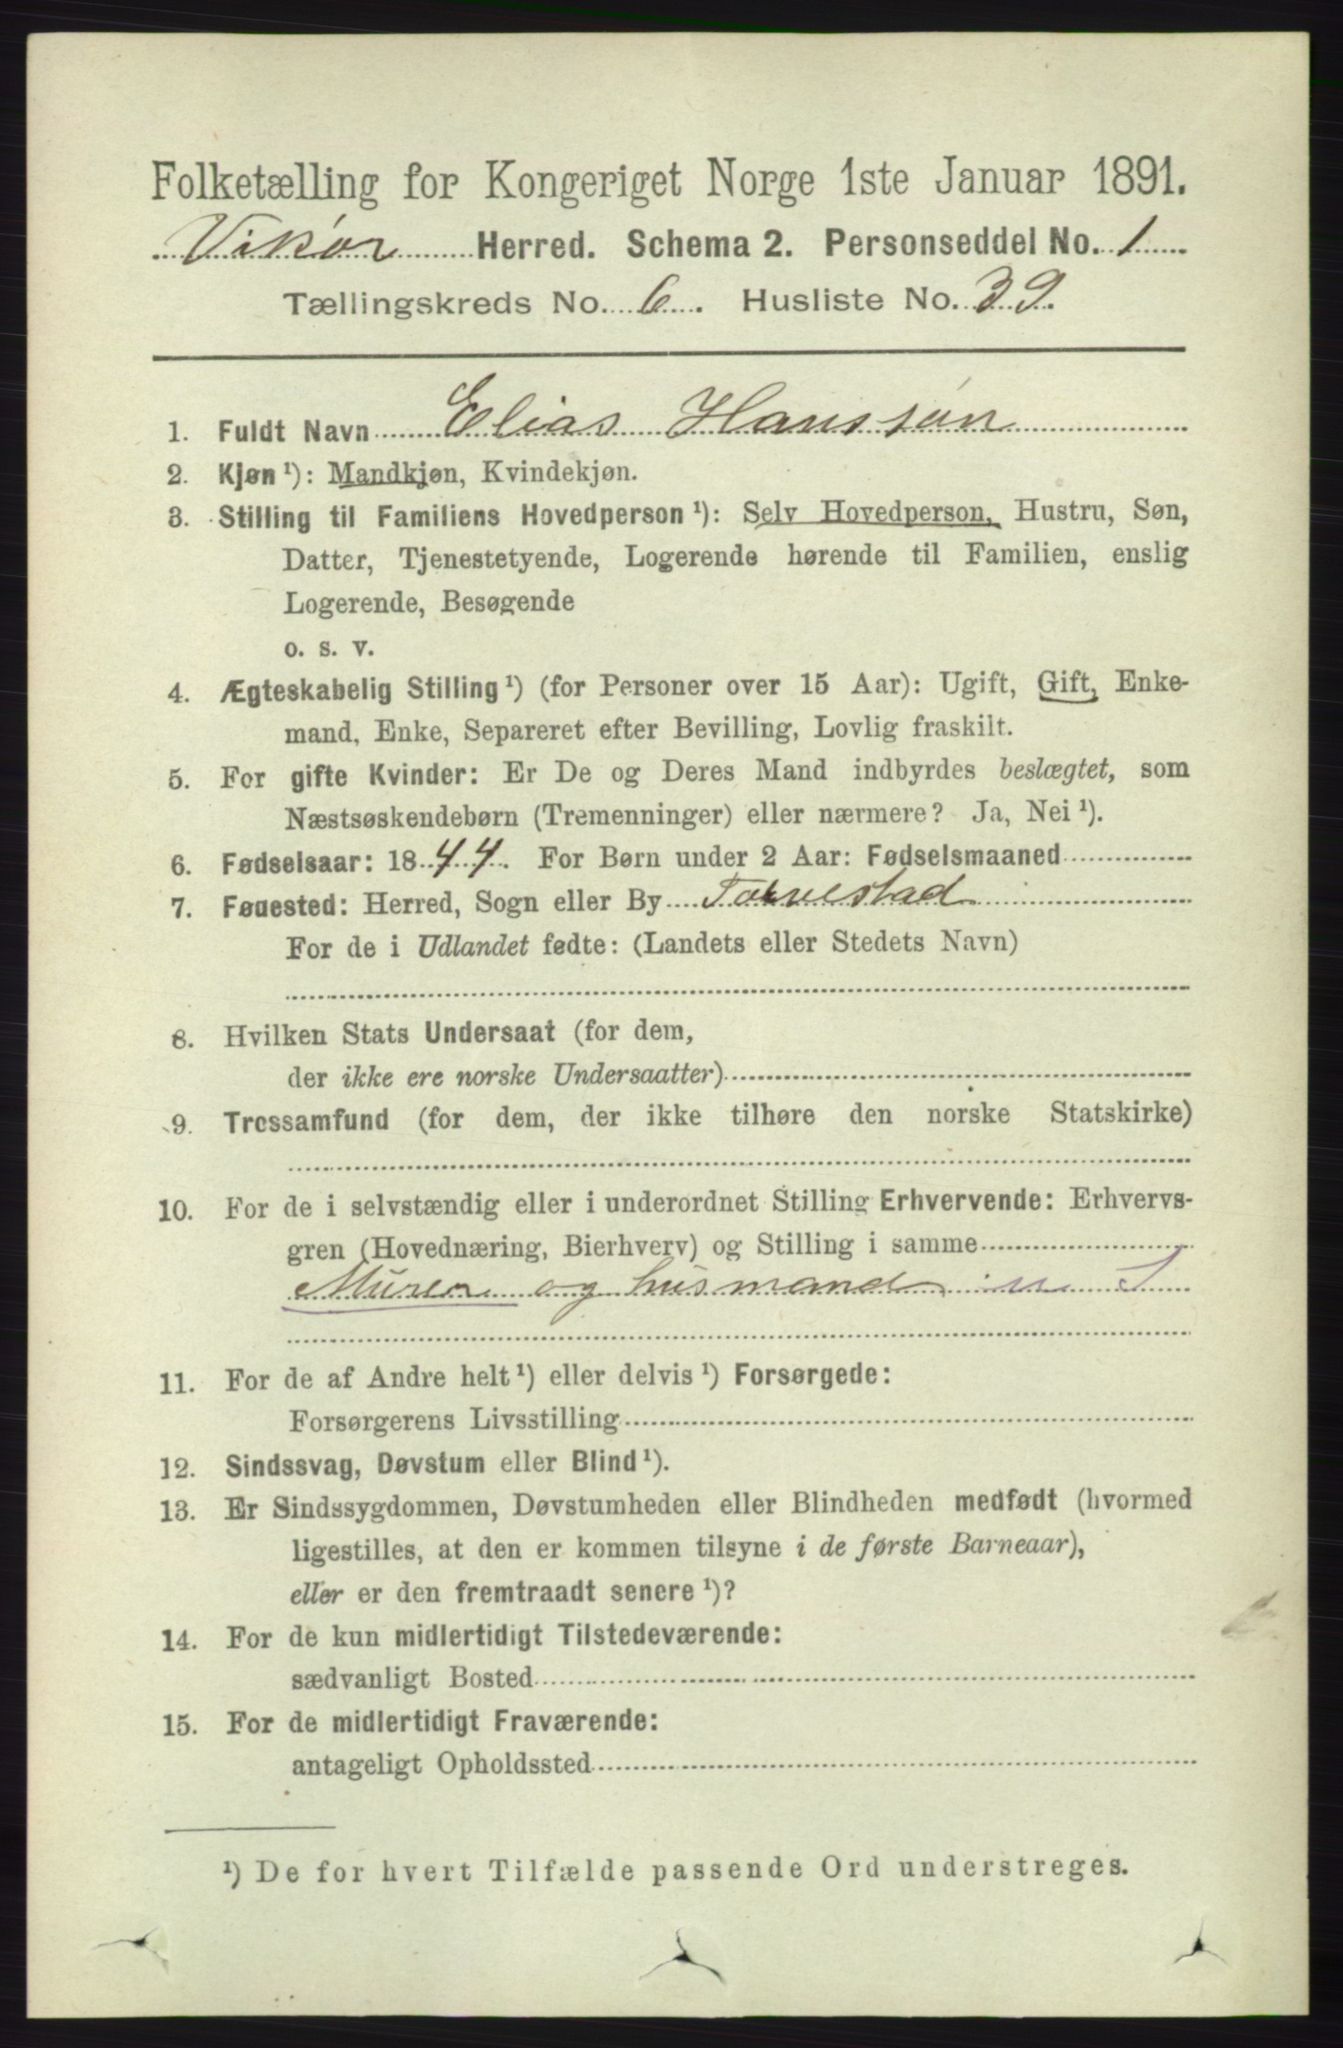 Folketælling for Kongeriget Norge 1ste Januar 1891.
Vikør Herred. Schema 2. Personseddel No. 1
Tællingskreds No. 6. Husliste No. 39.
1. Fuldt Navn Elias Hanssøn
2. Kjøn¹): Mandkjøn, Kvindekjøn.
3. Stilling til Familiens Hovedperson¹): Selv Hovedperson, Hustru, Søn,
Datter, Tjenestetyende, Logerende hørende til Familien, enslig
Logerende, Besøgende
o. s. v.
4. Ægteskabelig Stilling¹) (for Personer over 15 Aar): Ugift, Gift, Enke-
mand, Enke, Separeret efter Bevilling, Lovlig fraskilt.
5. For gifte Kvinder: Er De og Deres Mand indbyrdes beslægtet, som
Næstsøskendebørn (Tremenninger) eller nærmere? Ja, Nei¹).
6. Fødselsaar: 1844. For Børn under 2 Aar: Fødselsmaaned
7. Føuested: Herred, Sogn eller By Torvestad
For de i Udlandet fødte: (Landets eller Stedets Navn)
8. Hvilken Stats Undersaat (for dem,
der ikke ere norske Undersaatter)
9. Trossamfund (for dem, der ikke tilhøre den norske Statskirke)
10. For de i selvstændig eller i underordnet Stilling Erhvervende: Erhvervs-
gren (Hovednæring, Bierhverv) og Stilling i samme
Murer og husmand m J
11. For de af Andre helt¹) eller delvis¹) Forsørgede:
Forsørgerens Livsstilling
12. Sindssvag, Døvstum eller Blind¹).
13. Er Sindssygdommen, Døvstumheden eller Blindheden medfødt (hvormed
ligestilles, at den er kommen tilsyne i de første Barneaar),
eller er den fremtraadt senere¹)?
14. For de kun midlertidigt Tilstedeværende:
sædvanligt Bosted
15. For de midlertidigt Fraværende:
antageligt Opholdssted
¹) De for hvert Tilfælde passende Ord understreges.